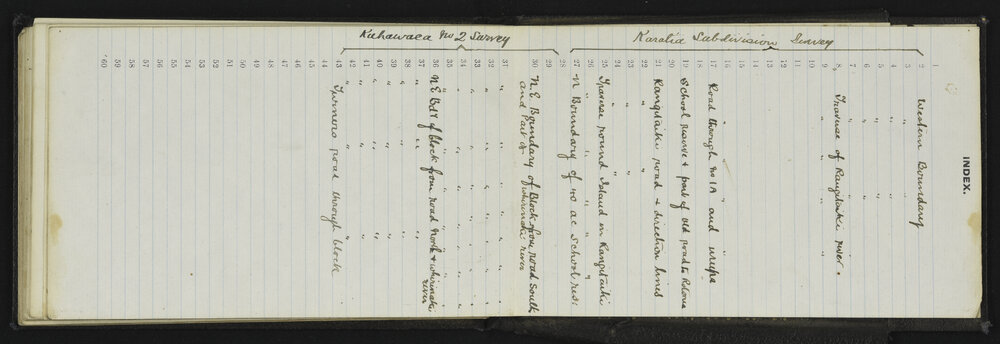 INDEX.
Karatia Subdivision Survey
1
2 Western Boundary
3 " "
4 " "
5 " "
6 " "
7 " "
8 Traverse of Rangitaiki river.
9 " " "
10
11
12
13
14
15
16 " " "
17 Road through No 1A and
18
19 School reserve & part of old road to Rotorua
20
21 Rangitaiki road & direction lines
22 " "
23 " "
24 " "
25 Traverse round Island on Rangitaiki
26 " " " "
27 N Boundary of 40 ac School res:
28
Kuhawaea No 2 Survey
29
30 N.E Boundary of Block from road South
and part of whirinaki river
31 " " " "
32 " " " "
33 " " " "
34 " " " "
35 " " " "
36 N E Bdy of block from road North & whirinaki
river
37 " " " "
38 " " " "
39 " " " "
40 " " " "
41 " " " "
42 " " " "
43 Turners road through block
44
45
46
47
48
49
50
51
52
53
54
55
56
57
58
59
60